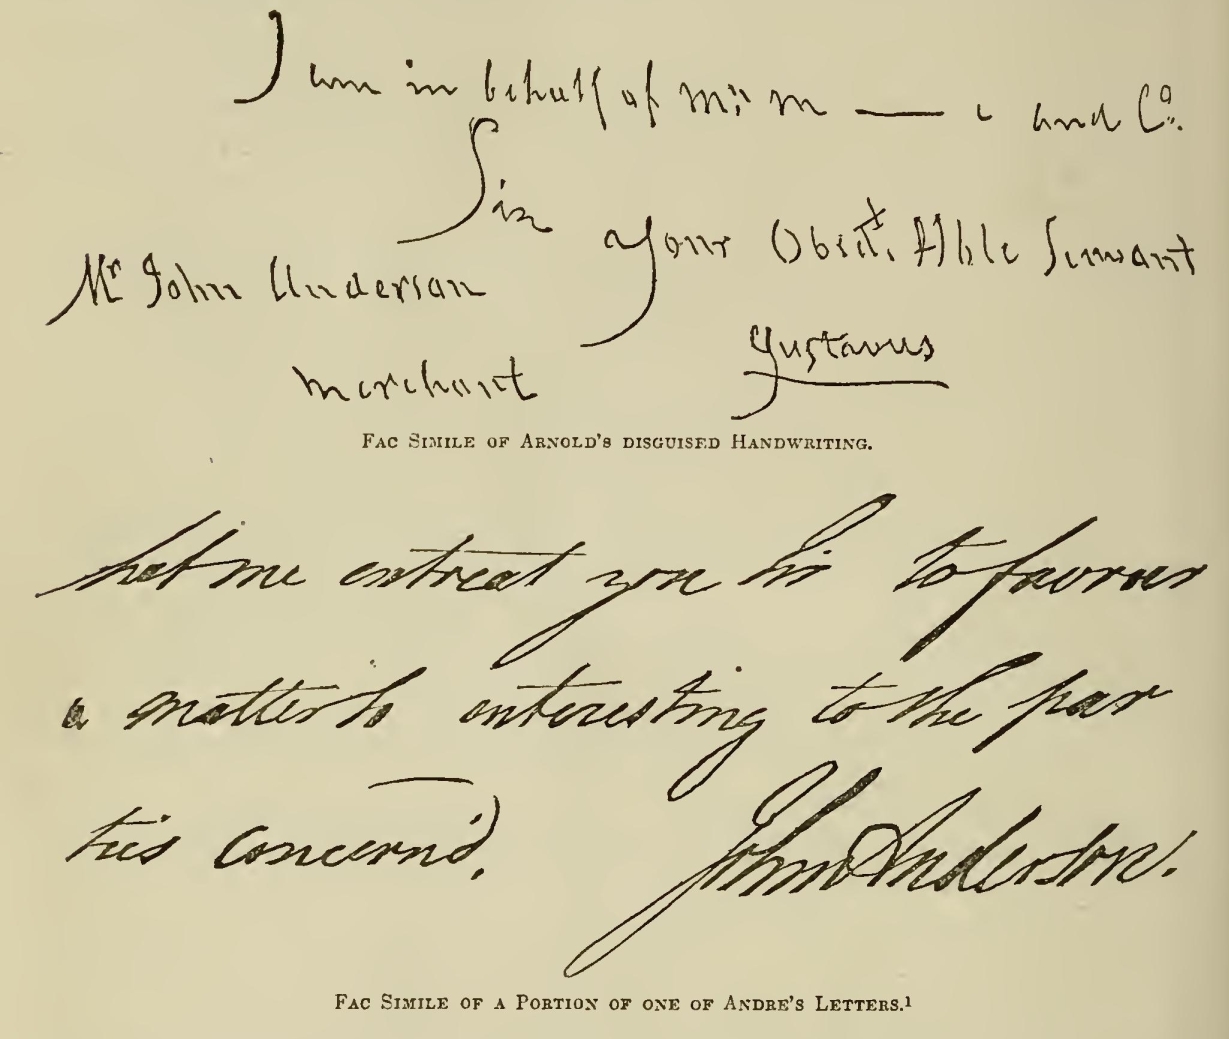 I am in behalf of Mr. M — e and Co.
Sir
your Obedt. Hble Servant
Mr John Anderson
Gustavus
merchant
FAC SIMILE OF ARNOLD'S DISGUISED HANDWRITING.
Let me entreat you Sir to favour
a matter so interesting to the par
ties concern'd,
John Anderson.
FAC SIMILE OF A PORTION OF ONE OF ANDRE'S LETTERS.¹